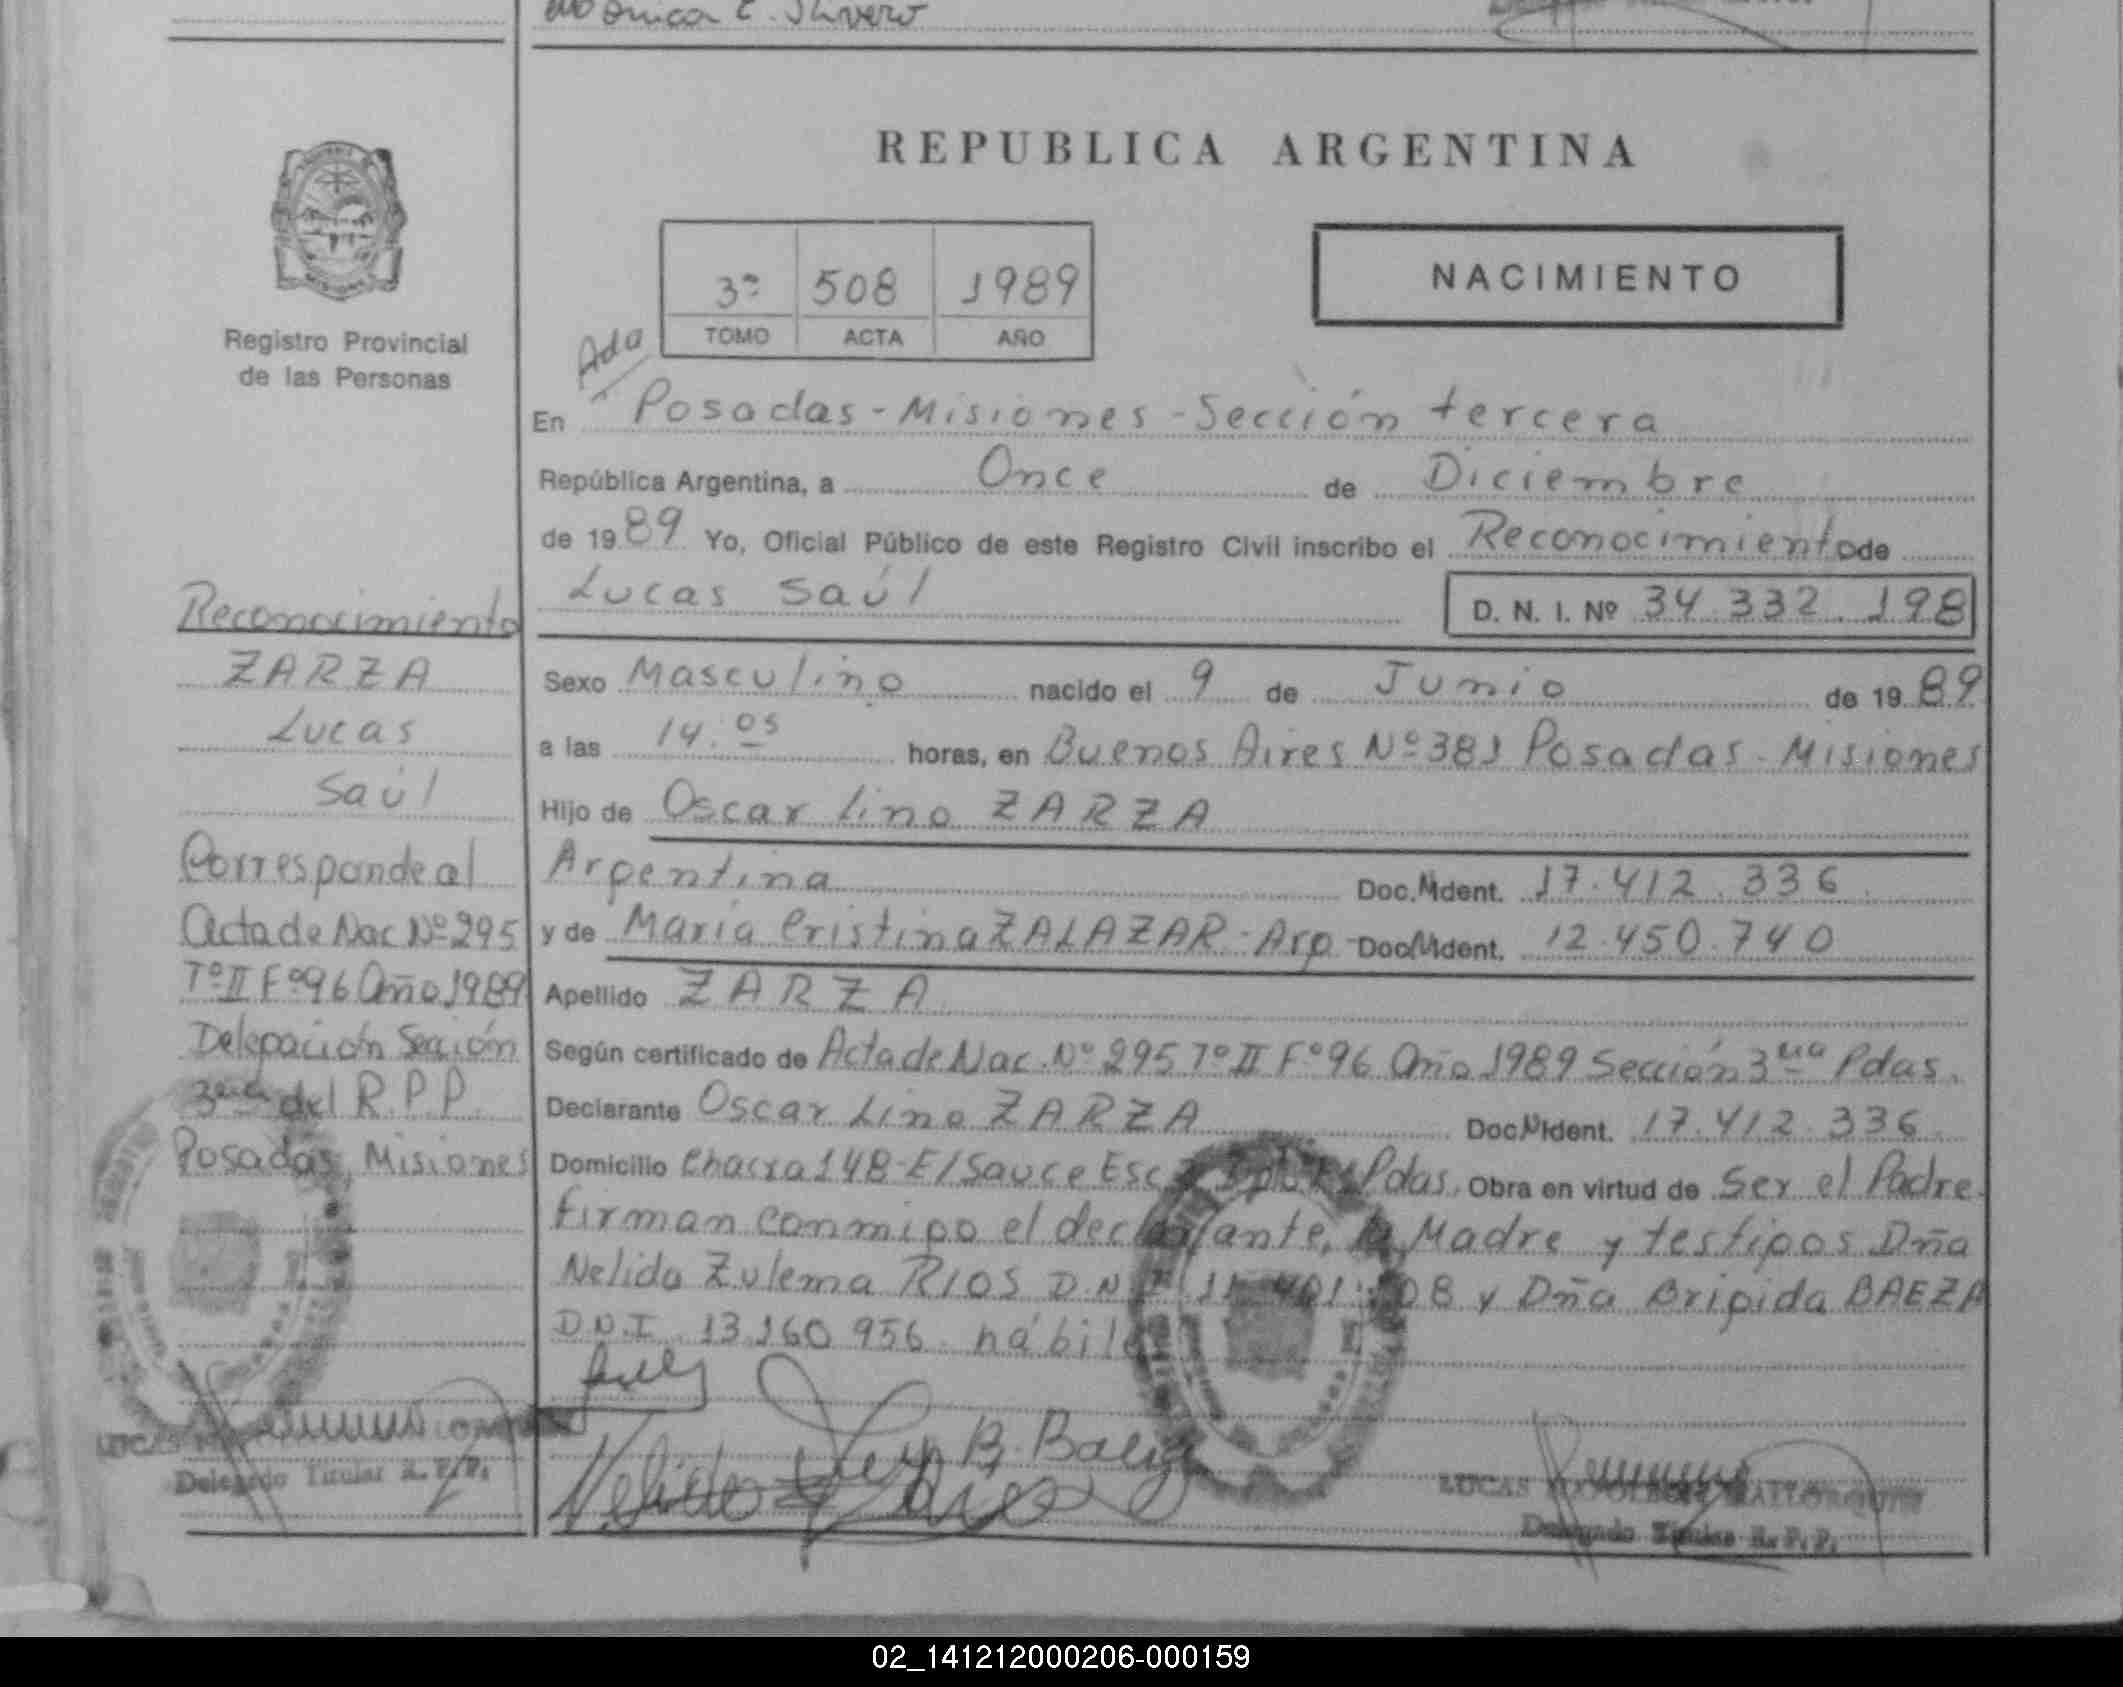 REPUBLICA ARGENTINA
Registro Provincial
de las Personas
3º 508 1989
TOMO ACTA AÑO
NACIMIENTO
Ada
En Posadas - Misiones - Sección tercera
República Argentina, a Once de Diciembre
de 1989 Yo, Oficial Público de este Registro Civil inscribo el Reconocimiento de
Lucas Saúl D. N. I. Nº 34.332.198
Sexo Masculino nacido el 9 de Junio de 1989
a las 14.05 horas, en Buenos Aires Nº 381 Posadas - Misiones
Hijo de Oscar Lino ZARZA
Argentina Doc. Ident. 17.412.336
y de María Cristina ZALAZAR - Arg - Doc. Ident. 12.450.740
Apellido ZARZA
Según certificado de Acta de Nac. Nº 295 Tº II Fº 96 Año 1989 Sección 3era Pdas.
Declarante Oscar Lino ZARZA Doc. Ident. 17.412.336
Domicilio Chacra 148 - El Sauce Esc. Pdas. Obra en virtud de Ser el Padre.
Firman conmigo el declarante, la Madre y testigos Dña
Nelida Zulema RIOS D.N.I. y Dña Brigida BAEZA
D.N.I. 13.160.956 hábiles
B. Baeza
Nelida Rios
Delegado Titular R. P. P.
Reconocimiento
ZARZA
Lucas
Saúl
Corresponde al
Acta de Nac Nº 295
Tº II Fº 96 Año 1989
Delegación Sección
3era del R.P.P.
Posadas, Misiones
LUCAS
Delegado Titular R. P. P.
02_141212000206-000159